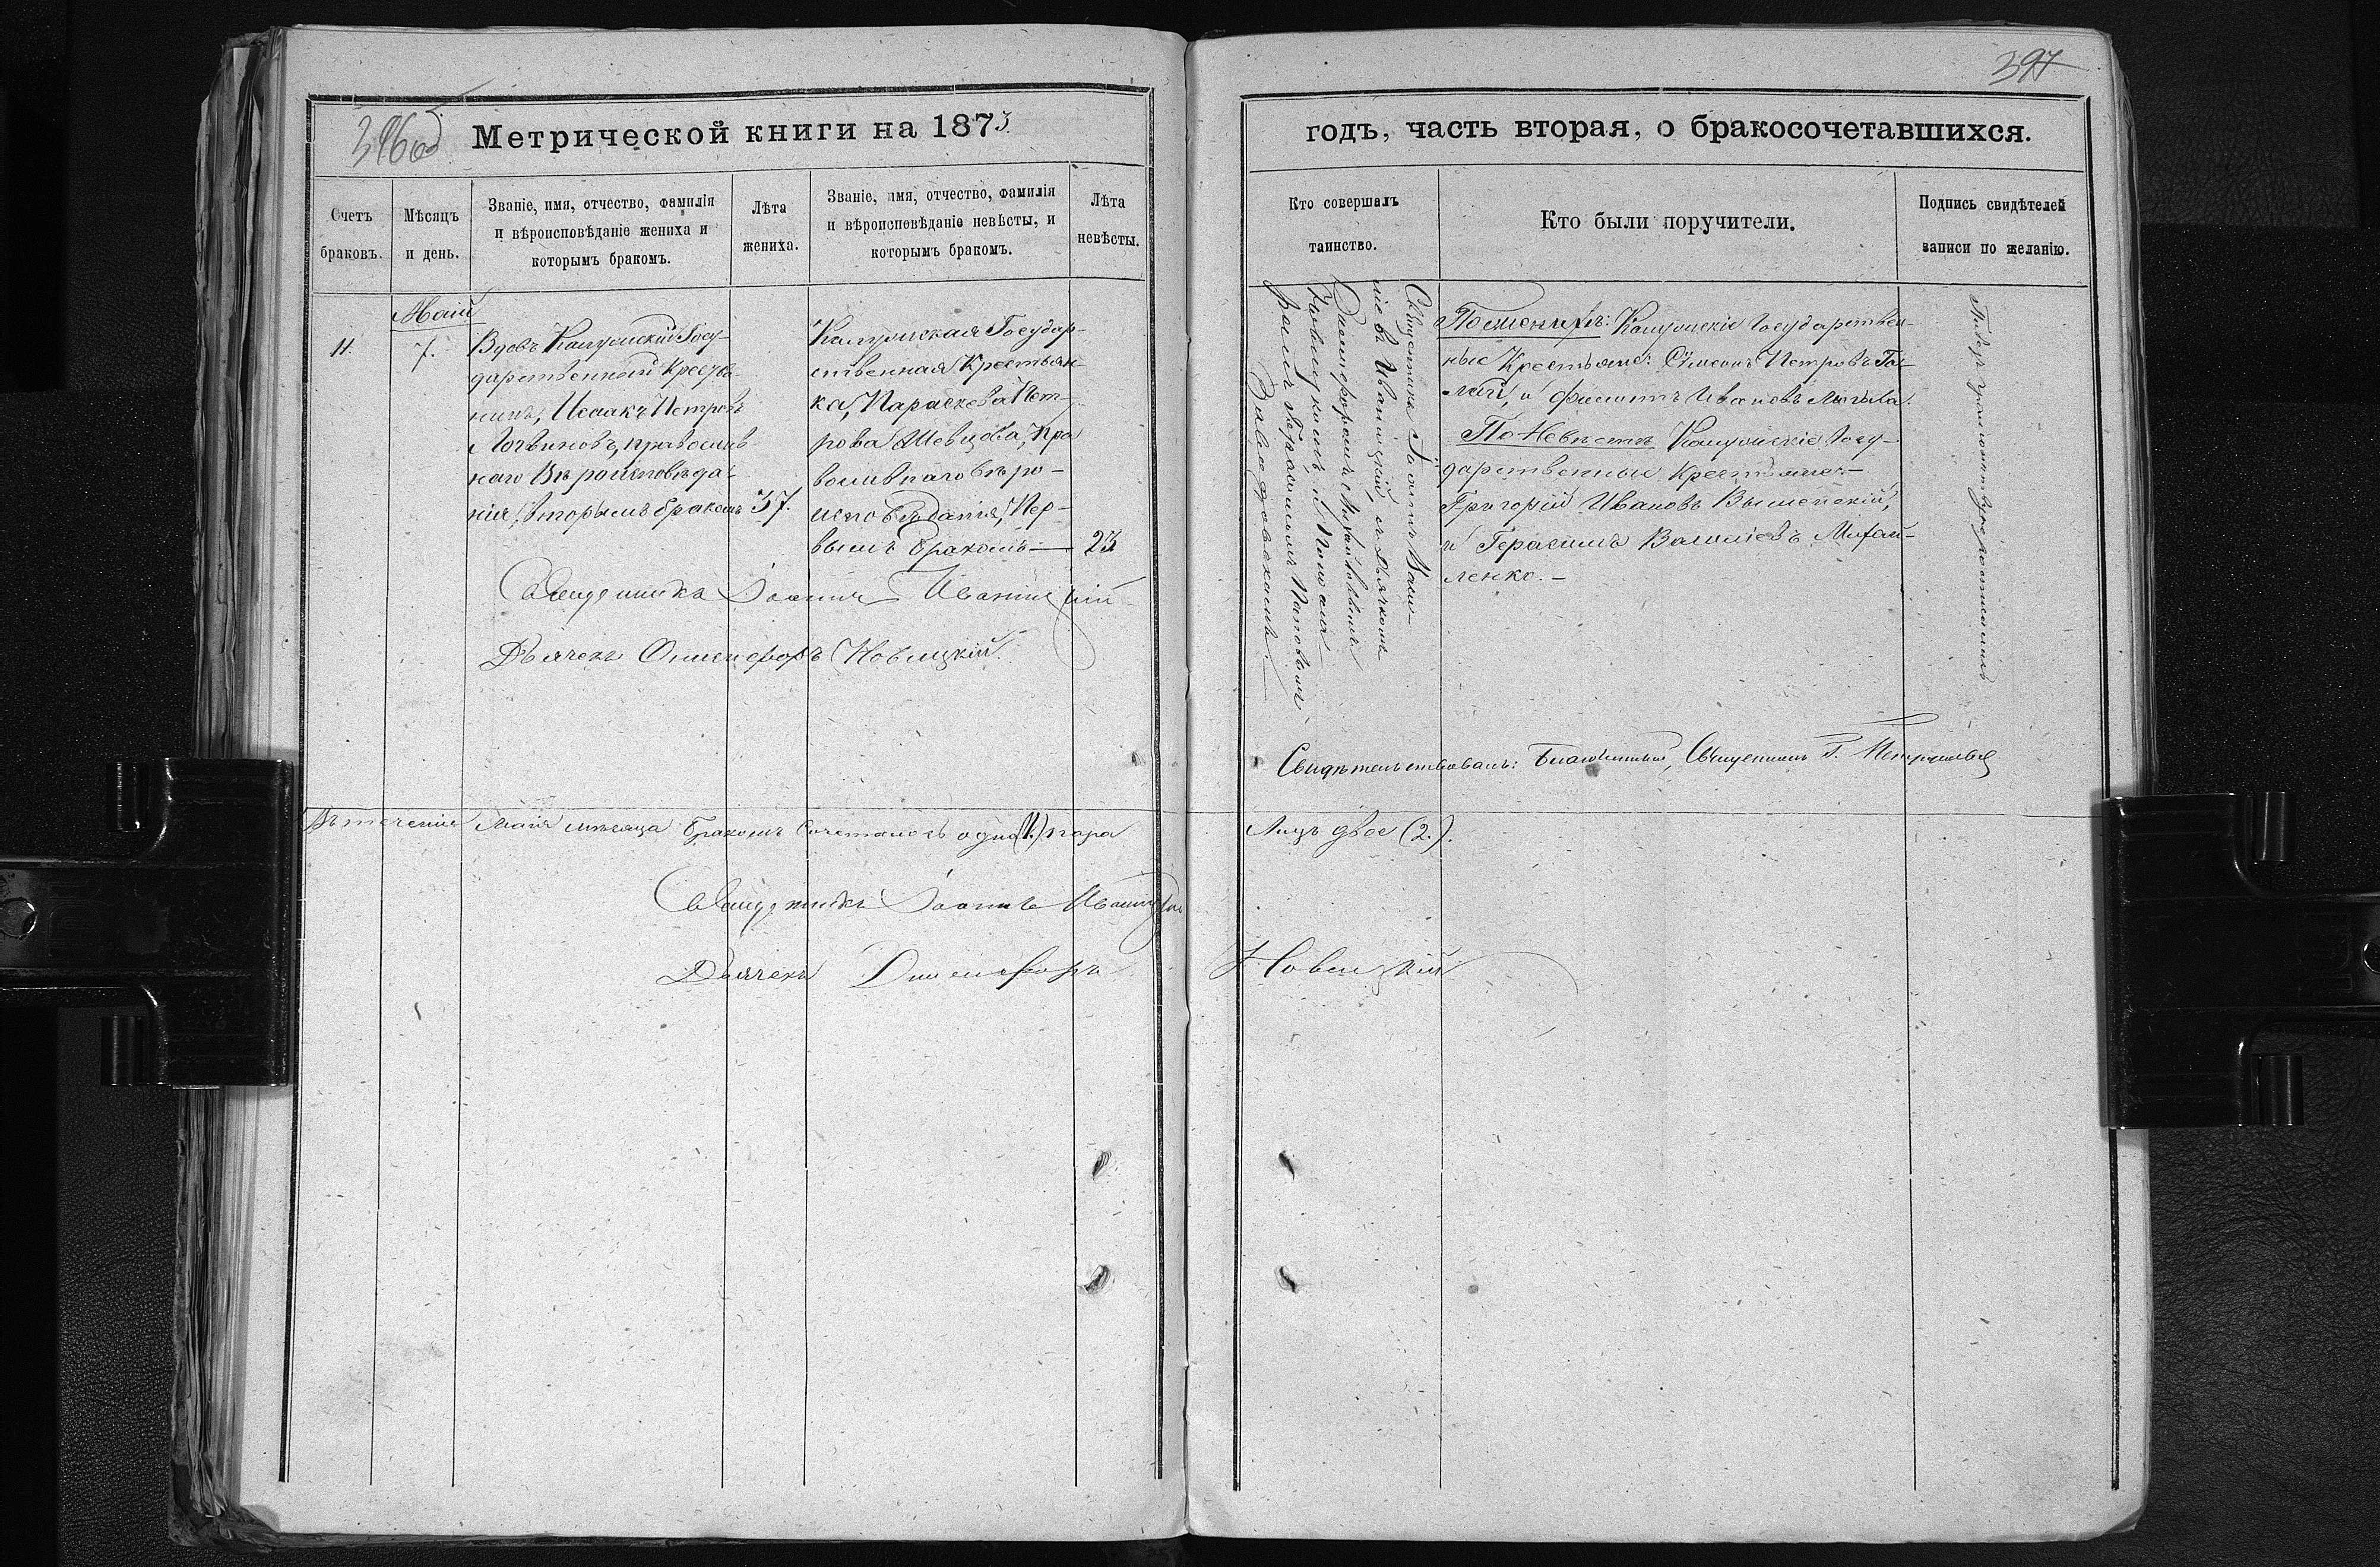 396 об
Метрической книги на 1873.
Счетъ браковъ.
Мѣсяцъ и день.
Званіе, имя, отчество, фамилія
и вѣроисповѣданіе жениха и
которымъ бракомъ.
Лѣта
жениха.
Званіе, имя, отчество, фамилія
и вѣроисповѣданіе невѣсты, и
которымъ бракомъ.
Лѣта
невѣсты.
Маій
11.
7.
Вдовъ Госу-
дарственный Крестья-
нинъ, Исаакъ Петровъ
Логвиновъ, православ
наго Вѣроисповѣда-
нія, вторымъ бракомъ
37.
Государ-
ственная Крестьян-
ка, Параскева Пет-
рова Шевцова, Пра
вославнаго вѣро-
исповѣданія, Пер-
вымъ бракомъ —
23
Священникъ Іоаннъ Иваницкій
Дьячекъ Онисифоръ Новицкій.
Въ теченіи Маія мѣсяца бракомъ сочеталось одна (1.) пара
Священникъ Іоаннъ Иваницкій
Дьячекъ Онисифоръ
397
годъ, часть вторая, о бракосочетавшихся.
Кто совершалъ
таинство.
Кто были поручители.
Подпись свидѣтелей
записи по желанію.
Священникъ Іоаннъ Васи-
ліевъ Иваницкій, съ Дьячкомъ
Онисифоромъ
Новицкимъ и
По женихѣ: Государствен-
ные Крестьяне: Сѵмеонъ Петровъ
и Филиппъ Ивановъ
По Невѣстѣ Госу-
дарственные Крестьяне: —
Григорій Ивановъ
и Герасимъ Василіевъ Михай-
ленко. —
Свидѣтельствовалъ: Благочинный, Священникъ
Лицъ двое (2.).
Новицкій